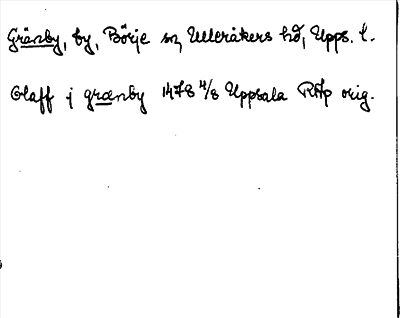 Gränby, by, Börje sn, Ulleråkers hd, Upps. l.
Olaff j grænby 1478 4/8 Uppsala RAp orig.